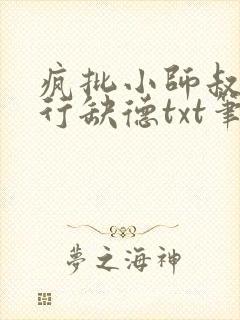 疯批小師叔
行缺德txt筆
夢之海神